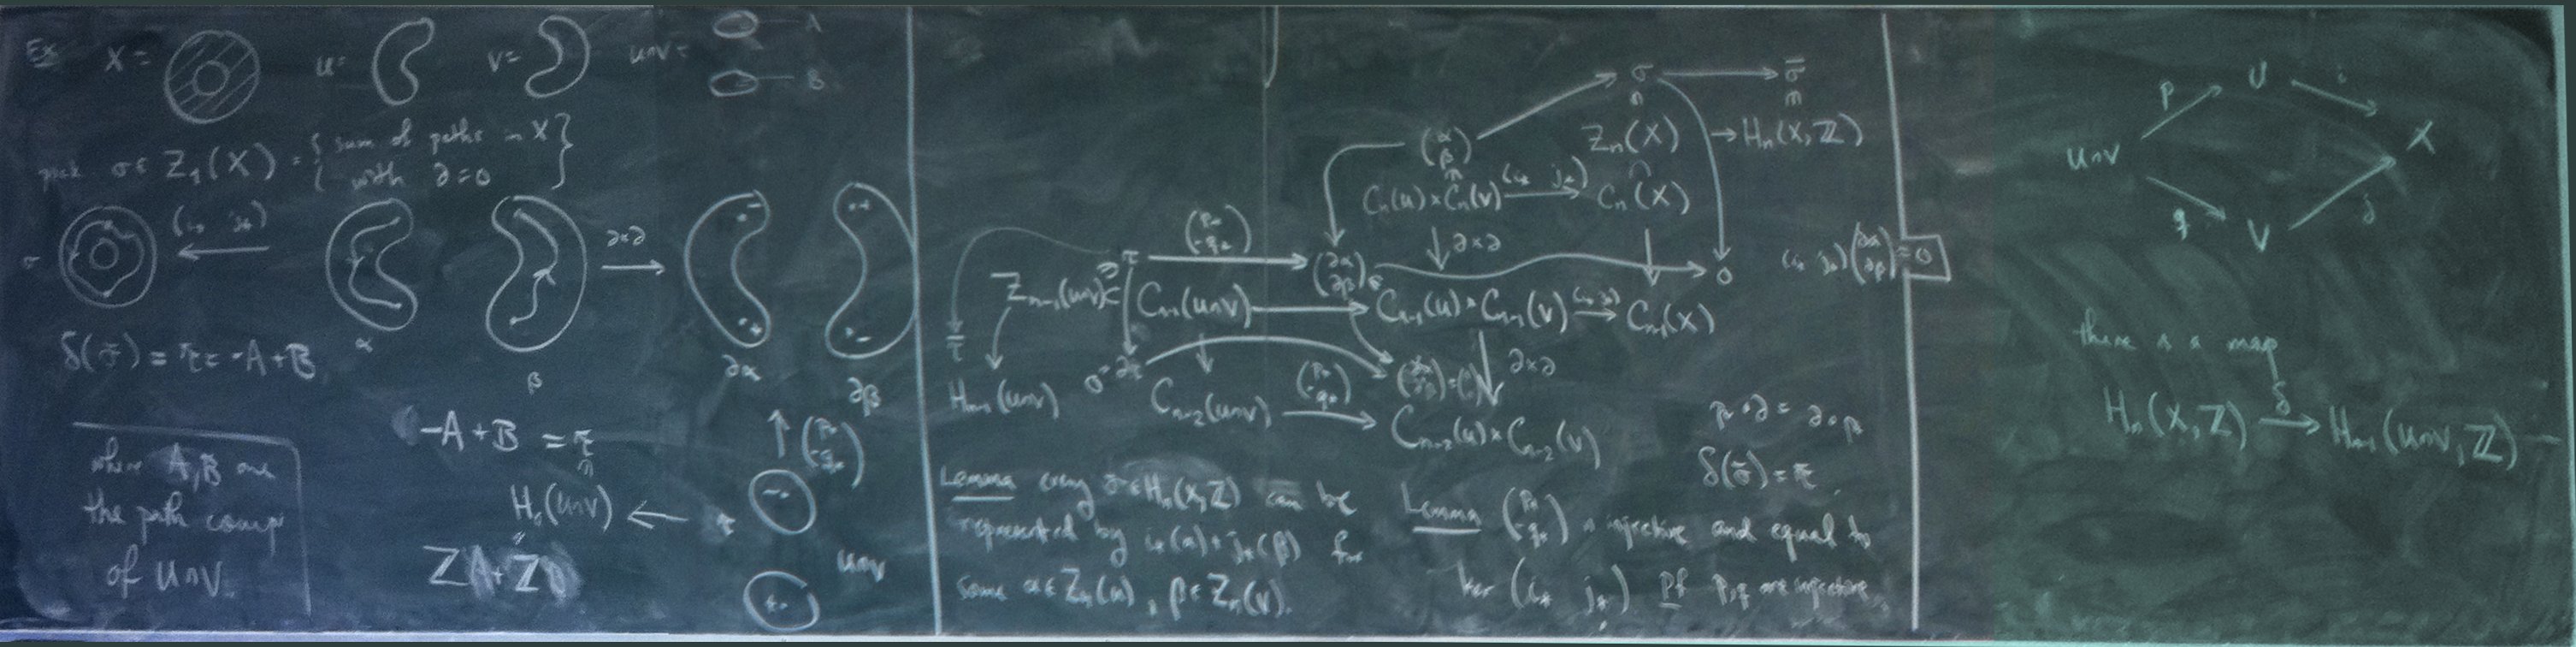 Ex X = U = V = U∩V = A
B
pick σ ∈ Z₁(X) = { sum of paths in X
with ∂=0 }
σ (i* j*) ∂×∂
α β ∂α ∂β
δ(σ̄) = τ̄ = -A+B
(p* -q*)
-A+B = τ̄
where A, B are
the path comp
of U∩V.
H₀(U∩V) ← τ
ZA + ZB
U∩V
σ → σ̄
(α β) Zn(X) → Hn(X,Z)
Cn(U) × Cn(V) (i* j*) Cn(X)
(p* -q*) ∂×∂
τ (∂α ∂β) 0 (i* j*)(∂α ∂β) = 0
Zn-1(U∩V) ⊂ Cn-1(U∩V) → Cn-1(U) × Cn-1(V) (i* j*) → Cn-1(X)
τ̄ ∂×∂
Hn-1(U∩V) 0=∂τ Cn-2(U∩V) (p* -q*) Cn-2(U) × Cn-2(V)
p∘∂ = ∂∘p
δ(σ̄) = τ̄
Lemma every σ̄ ∈ Hn(X,Z) can be
represented by i*(α) + j*(β) for
some α ∈ Zn(U), β ∈ Zn(V).
Lemma (p* -q*) is injective and equal to
ker (i* j*) Pf p,q are injective
U∩V p U i X
q V j
there is a map
Hn(X,Z) δ→ Hn-1(U∩V,Z)